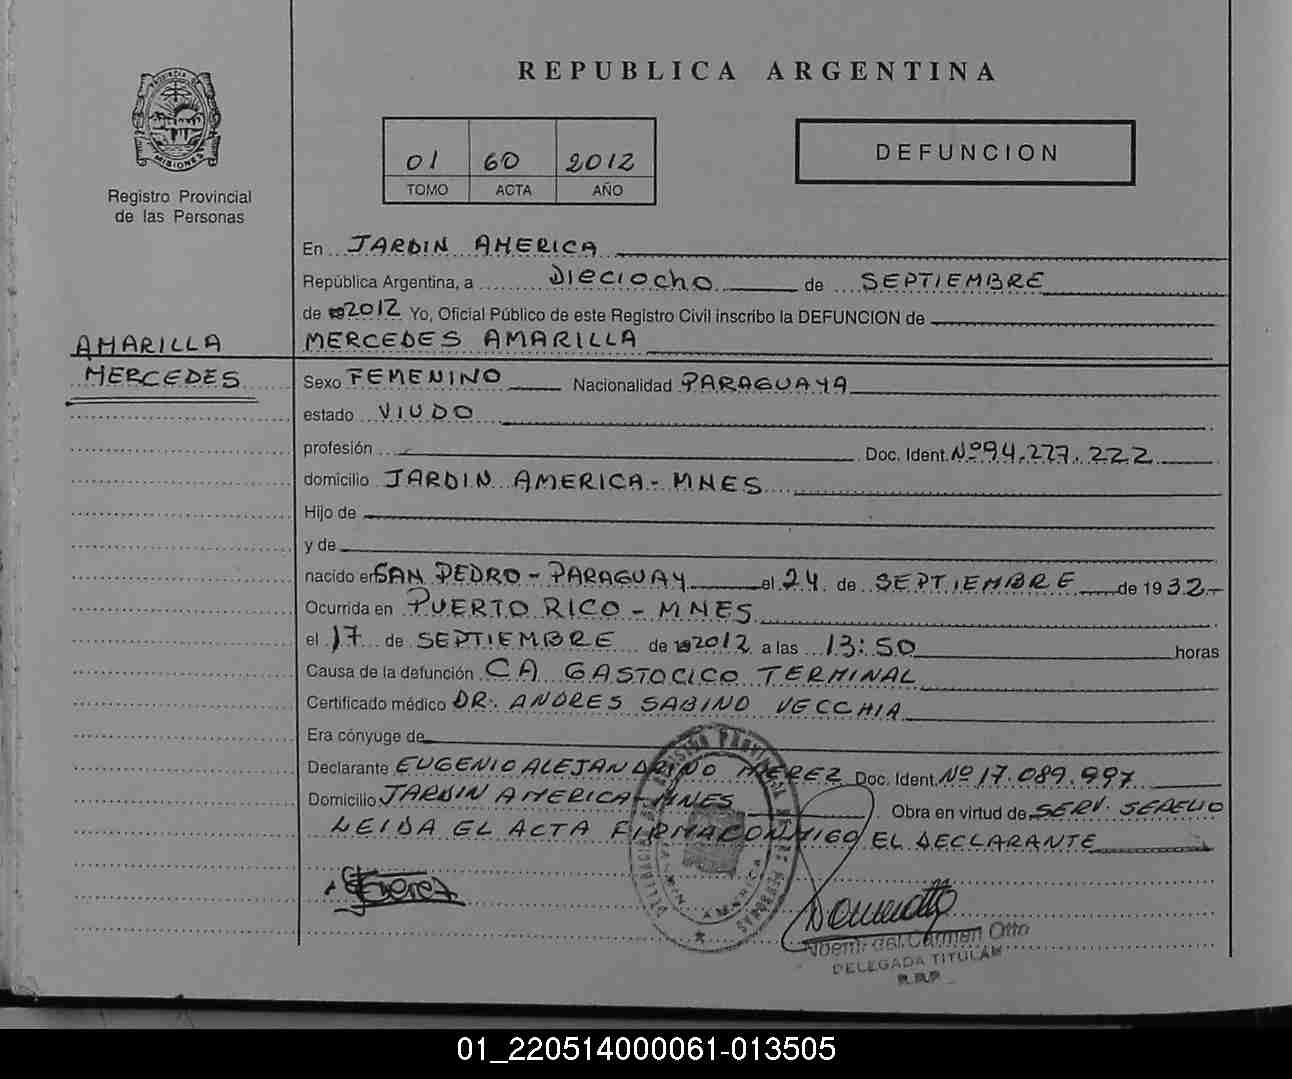 REPUBLICA ARGENTINA
PROVINCIA DE
MISIONES
Registro Provincial
de las Personas
01 60 2012
TOMO ACTA AÑO
DEFUNCION
En JARDIN AMERICA
República Argentina, a DIECIOCHO de SEPTIEMBRE
de 2012 Yo, Oficial Público de este Registro Civil inscribo la DEFUNCION de
MERCEDES AMARILLA
AMARILLA
MERCEDES
Sexo FEMENINO Nacionalidad PARAGUAYA
estado VIUDO
profesión Doc. Ident. Nº 94.277.222
domicilio JARDIN AMERICA - MNES
Hijo de
y de
nacido en SAN PEDRO - PARAGUAY el 24 de SEPTIEMBRE de 1932-
Ocurrida en PUERTO RICO - MNES
el 17 de SEPTIEMBRE de 2012 a las 13:50 horas
Causa de la defunción CA GASTOCICO TERMINAL
Certificado médico DR. ANDRES SABINO VECCHIA
Era cónyuge de
Declarante EUGENIO ALEJANDRINO MEREZ Doc. Ident. Nº 17.089.997
Domicilio JARDIN AMERICA - MNES Obra en virtud de SERV. SEPELIO
LEIDA EL ACTA FIRMA CONMIGO EL DECLARANTE
Noemi del Carmen Otto
DELEGADA TITULAR
R.R.P
01_220514000061-013505